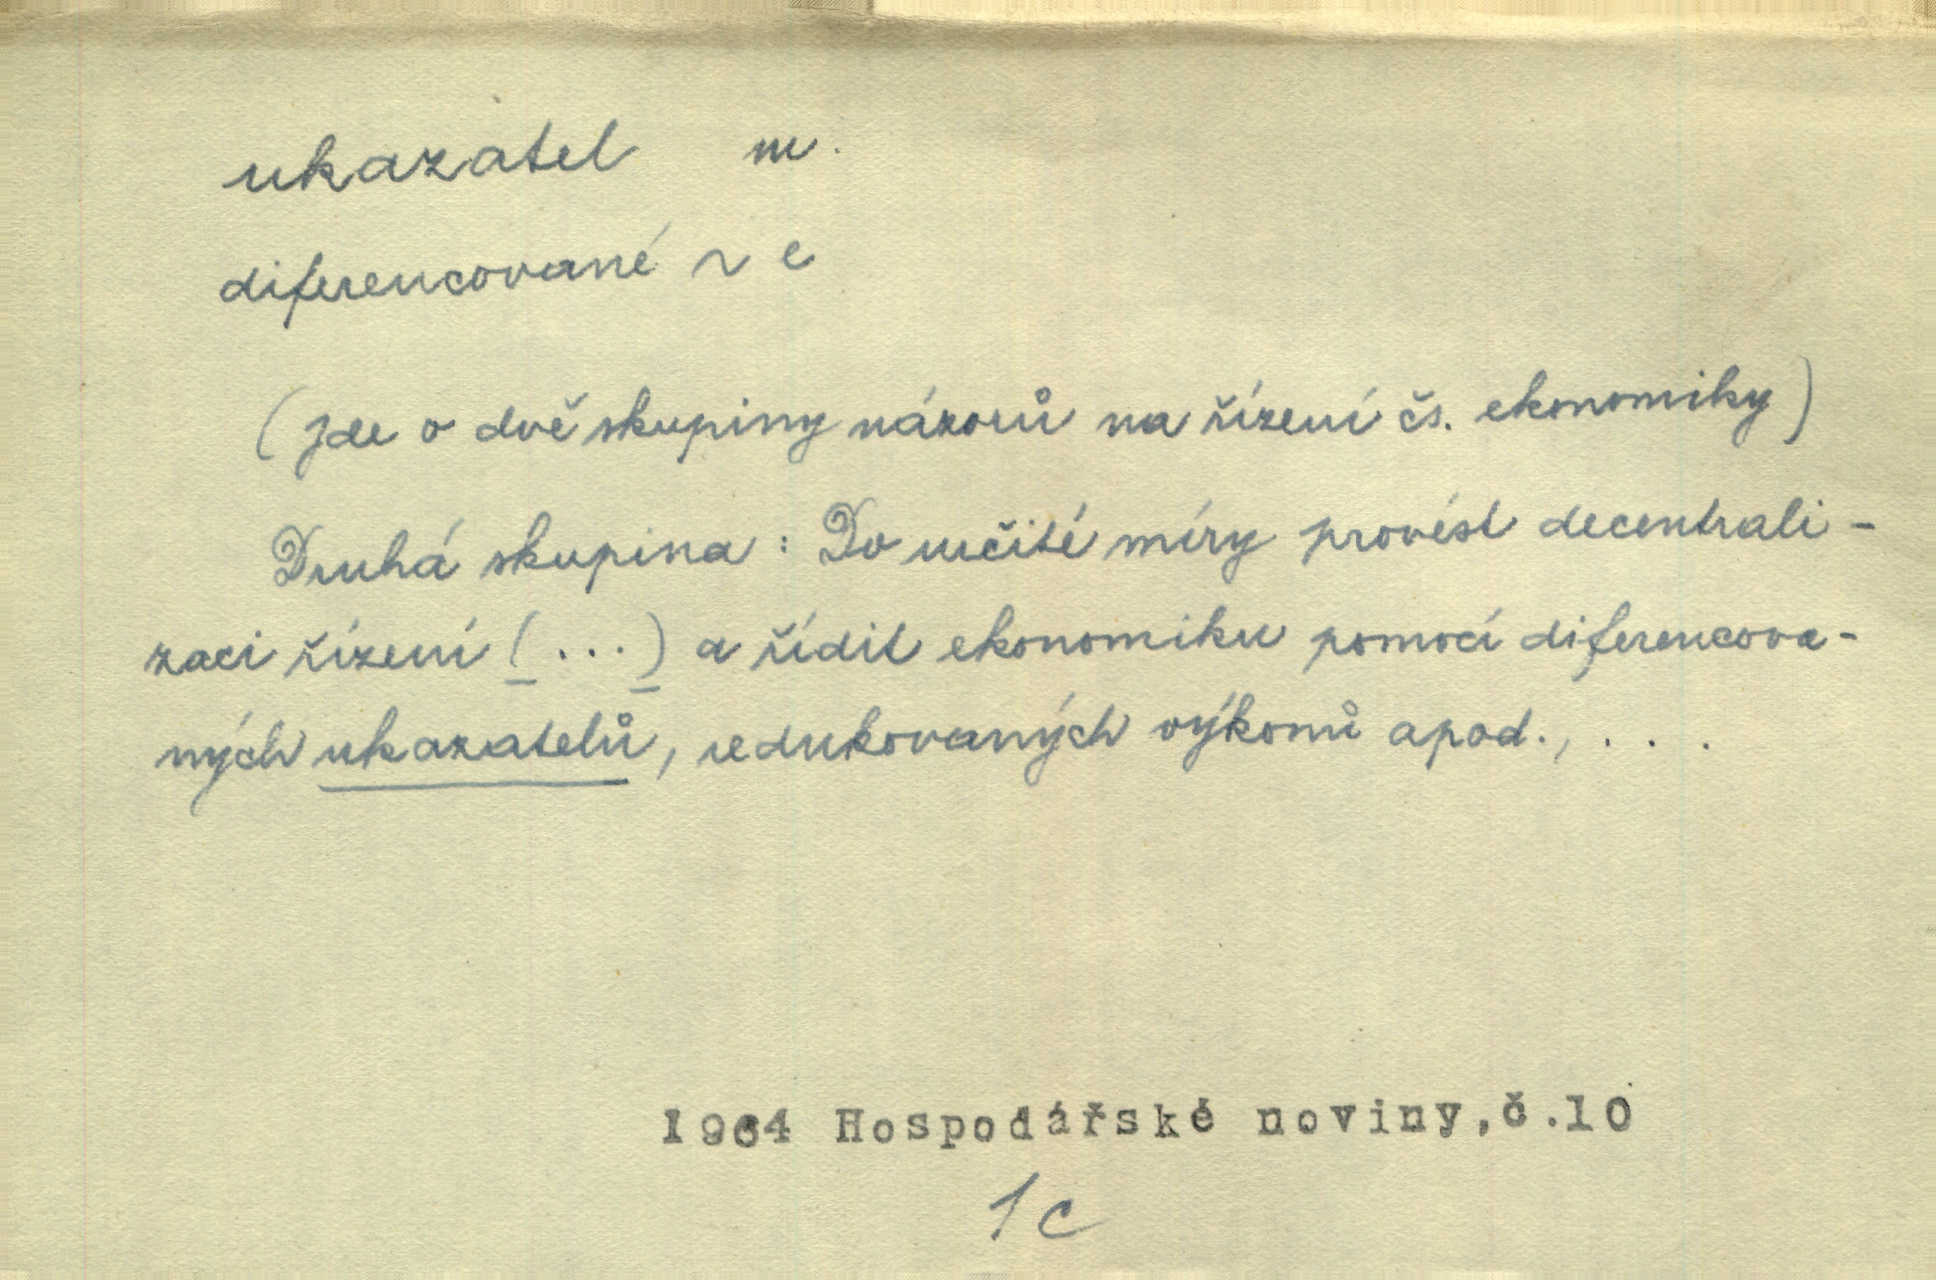 ukazatel m.
diferencované ~ e
(Jde o dvě skupiny názorů na řízení čs. ekonomiky)
Druhá skupina : Do určité míry provést decentrali-
zaci řízení (...) a řídit ekonomiku pomocí diferencova-
ných ukazatelů, redukovaných výkonů apod., . . .
1964 Hospodářské noviny,č.10
1c